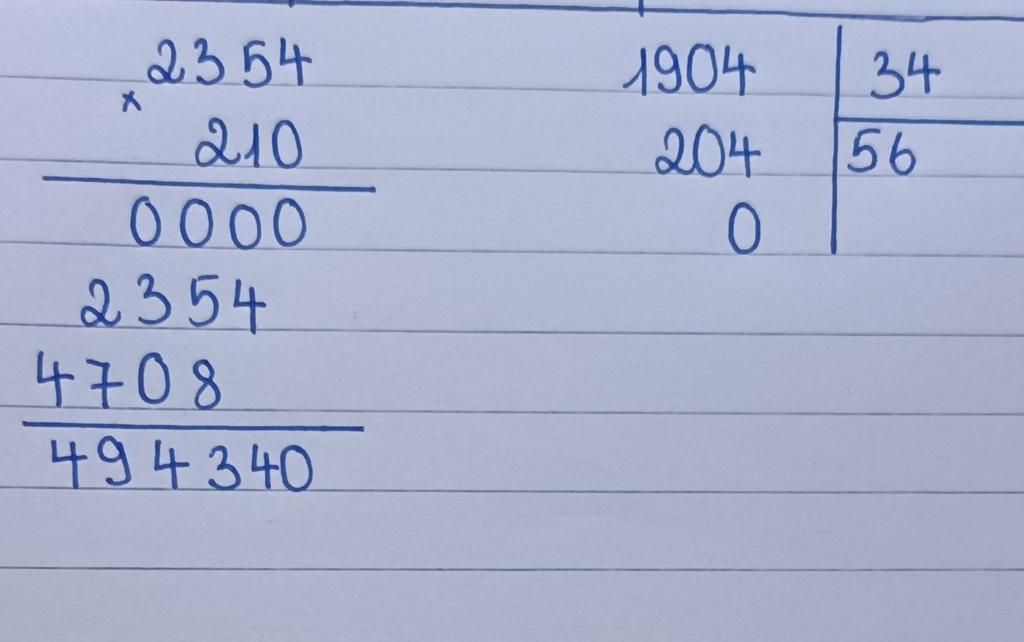 2354
×
210
0000
2354
4708
494340
1904 34
204 56
0